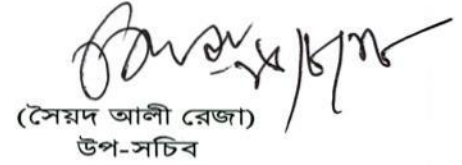 (সৈয়দ আলী রেজা)
উপ-সচিব